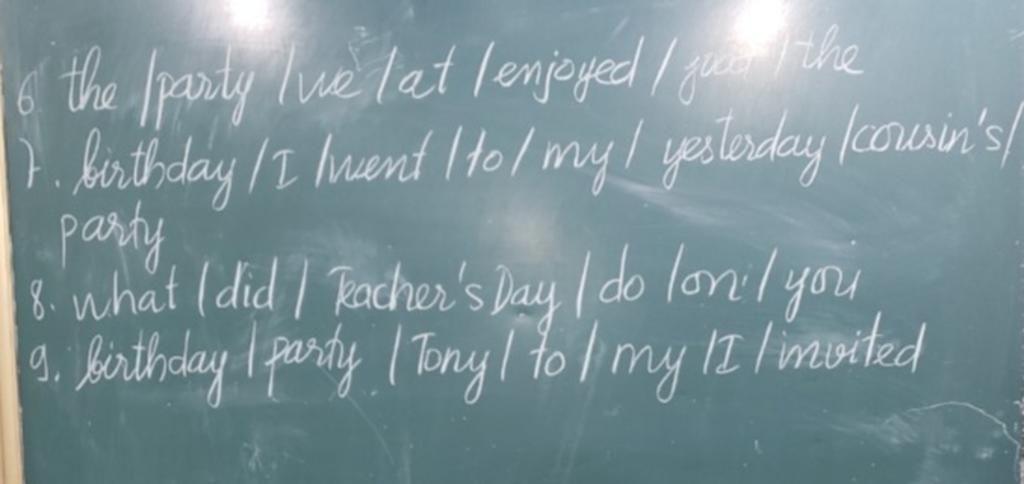 6 the / party / we / at / enjoyed / food / the
7. birthday / I / went / to / my / yesterday / cousin's /
party
8. what / did / Teacher's Day / do / on / you
9. birthday / party / Tony / to / my / I / invited